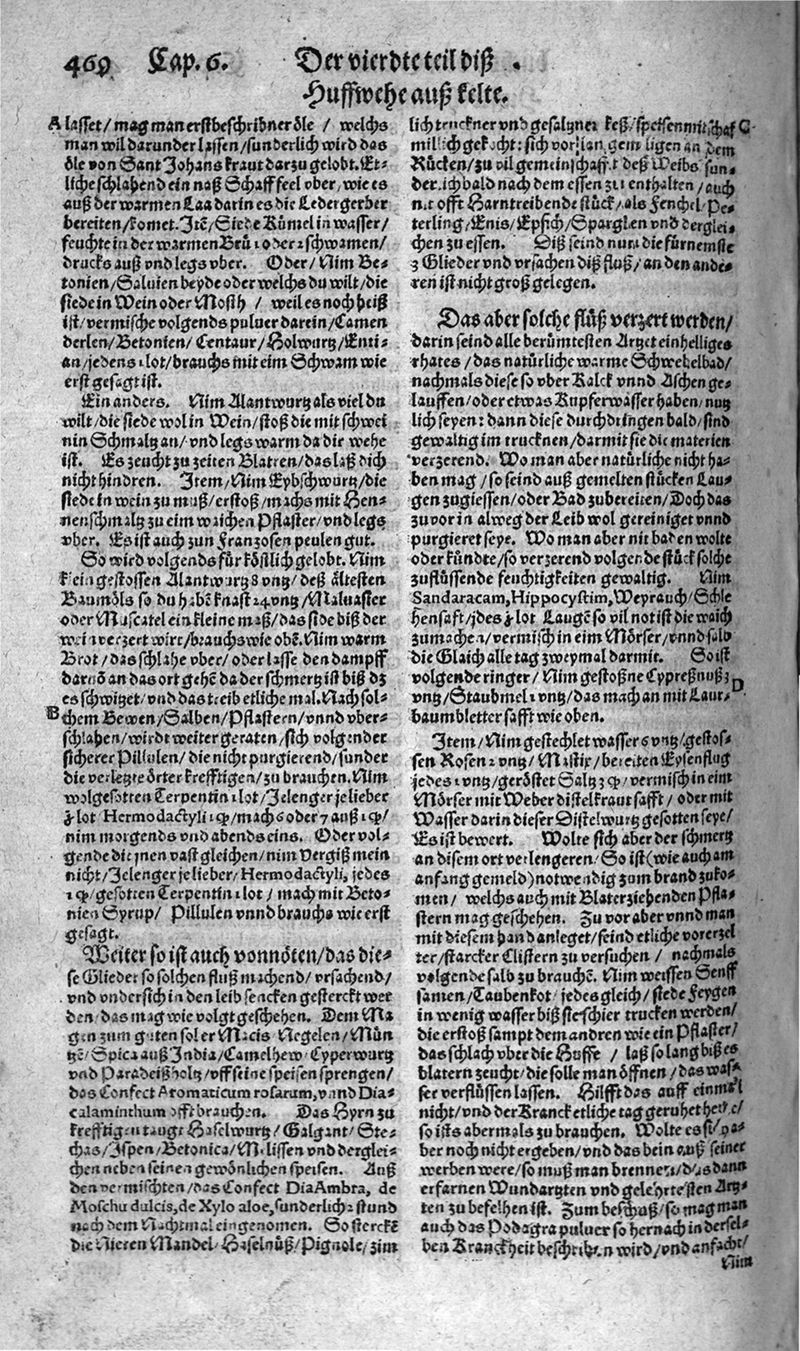 469 Cap. 6. Der vierdte teil diß
Huffwehe auß kelte.
A lasset/ mag man erst beschribner öle / welchs
man wil darunder lassen/ sunderlich wird das
öle von Sant Johans kraut darzu gelobt. Et-
liche schlahend ein naß Schaff feel vber, wie es
auß der warmen Laa darin es die Ledergerber
bereiten/ komet. Itē/ Siede Kümel in wasser/
feuchte in der warmen Brü 1 oder 2 schwamen/
drucks auß vnd legs vber. Oder/ Nim Be-
tonien/ Saluien beyde oder welchs du wilt/ die
siede in Wein oder Mosth / weil es noch heiß
ist/ vermische volgends puluer darein/ Camen
derlen/ Betonien/ Centaur/ Holwurtz/ Enti-
an/ jedens 1 lot/ brauchs mit eim Schwam wie
erst gesagt ist.
Ein anders. Nim Alantwurtz als viel du
wilt/ die siede wol in Wein/ stoß die mit schwei
nin Schmaltz an/ vnd legs warm da dir wehe
ist. Es zeucht zu zeiten Blatren/ das laß dich
nicht hindren. Item/ Nim Eybschwurtz/ die
siede in wein zu muß/ erstoß/ machs mit Hen-
nenschmaltz zu eim waichen Pflaster/ vnd legs
vber. Es ist auch zun Franzosen peulen gut.
So wird volgends für köstlich gelobt. Nim
klein gestossen Alantwurtz 8 vntz/ deß ältesten
Baumöls so du habē kanst 24 vntz/ Maluasier
oder Muscatel ein kleine maß/ das side biß der
wein verzert wirt/ brauchs wie obē. Nim warm
Brot/ das schlahe vber/ oder lasse den dampff
daruō an das ort gehē da der schmertz ist biß dz
es schwitzet/ vnd das treib etliche mal. Nach sol-
B chem Bewen/ Salben/ Pflastern/ vnnd vber-
schlahen/ wirdt weiter geraten/ sich volgender
sicherer Pillulen/ die nicht purgierend/ sunder
die verletzte örter krefftigen/ zu brauchen. Nim
wolgesotten Terpentin 1 lot/ Jelenger jelieber
½ lot Hermodactyli 1 qͥ/ mach 6 oder 7 auß 1 qͥ/
nim morgends vnd abends eins. Oder vol-
gende die jnen vast gleichen/ nim Vergiß mein
nicht/ Jelenger jelieber/ Hermodactyli, jedes
1 qͥ/ gesotten Terpentin 1 lot / mach mit Beto-
nien Syrup/ Pillulen vnnd brauchs wie erst
gesagt.
Weiter so ist auch vonnöten/ das die-
se Glieder so solchen fluß machend/ vrsachend/
vnd vndersich in den leib sencken gesterckt wer
den/ das mag wie volgt geschehen. Dem Ma
gen zum guten sol er Macis Negelen/ Mün
tzē/ Spica auß India/ Camelhew/ Cyperwurtz
vnd Paradeißholtz/ vff seine speisen sprengen/
das Confect Aromaticum rosarum, vnnd Dia-
calaminthum offt brauchen. Das Hyrn zu
krefftigen taugt Haselwurtz/ Galgant/ Ste-
chas/ Ispen/ Betonica/ Melissen vnd derglei-
chen neben seinen gewönlichen speisen. Auß
den vermischten/ das Confect DiaAmbra, de
Moschu dulcis, de Xylo aloe, sunderlich 2 stund
nach dem Nachtmal eingenomen. So sterckē
die Nieren Mandel/ Haselnüß/ Pignole/ zim
lich truckner vnd gesaltzner keß/ speisen mit schaf C
millich gekocht: sich vor langem ligen an dem
Rücken/ zu vil gemeinschafft deß Weibs sun-
derlich bald nach dem essen zu enthalten/ auch
nit offt Harntreibende stück/ als Fenchel/ Pe-
terling/ Enis/ Epfich/ Sparglen vnd derglei-
chen zu essen. Diß seind nura die fürnemste
3 Glieder vnd vrsachen diß fluß/ an den ande-
ren ist nicht groß gelegen.
Das aber solche flüß verzert werden/
darin seind alle berümtesten Artzet einhelliges
rhates/ das natürliche warme Schwebelbad/
nachmals diese so vber Kalck vnnd Aschen ge-
lauffen/ oder etwas Kupferwasser haben/ nutz
lich seyen: dann diese durchdringen bald/ sind
gewaltig im trucknen/ darmit sie die materien
verzerend. Wo man aber natürliche nicht ha-
ben mag/ so seind auß gemelten stücken Lau-
gen zugiessen/ oder Bad zubereiten/ Doch das
zuvor in alweg der Leib wol gereiniget vnnd
purgieret seye. Wo man aber nit baden wolte
oder kündte/ so verzerend volgende stück solche
zuflüssende feuchtigkeiten gewaltig. Nim
Sandaracam, Hippocystim, Weyrauch/ Schle
hensaft/ jdes ½ lot Laugē so vil not ist die waich
zumachen/ vermisch in eim Mörser/ vnnd salb
die Glaich alle tag zweymal darmit. So ist
volgende ringer/ Nim gestoßne Cypreßnuß 3 D
vntz/ Staubmel 1 vntz/ das mach an mit Laur-
baumbletter safft wie oben.
Item/ Nim gestechlet wasser 6 vntz/ gestos-
sen Rosen 2 vntz/ Mastix/ bereiten Eysenflug
jedes 1 vntz/ geröstet Saltz 3 qͥ/ vermisch in eim
Mörser mit Weber distelkraut safft / oder mit
Wasser darin dieser Distelwurtz gesotten seye/
Es ist bewert. Wolte sich aber der schmertz
an disem ort verlengeren/ So ist (wie auch am
anfang gemeld) notwendig zum brand zu ko-
men/ welchs auch mit Blaterziehenden Pfla-
stern mag geschehen. Zuvor aber vnnd man
mit diesem hand anleget/ seind etliche vorerzel
ter/ starcker Clistern zu versuchen / nachmals
volgende salb zu brauchē. Nim weissen Senff
samen/ Taubenkot jedes gleich/ siede Feygen
in wenig wasser biß sie schier trucken werden/
die erstoß sampt dem andren wie ein Pflaster/
das schlach vber die Huffe / laß so lang biß es
blatern zeucht/ die solle man öffnen/ das was-
ser verflüssen lassen. Hilfft das auff einmal
nicht/ vnd der Kranck etliche tag geruhet hette/
so ists abermals zu brauchen. Wolte es si/ ga/
ber noch nicht ergeben/ vnd das bein auß seiner
werben were/ so muß man brennen/ das dann
erfarnen Wundartzten vnd gelehrtesten Artz-
ten zu befelhen ist. Zum beschuß/ so mag man
auch das Podagra puluer so hernach in dersel-
ben Kranckheit beschriben wird/ vnd anfacht/
Nim